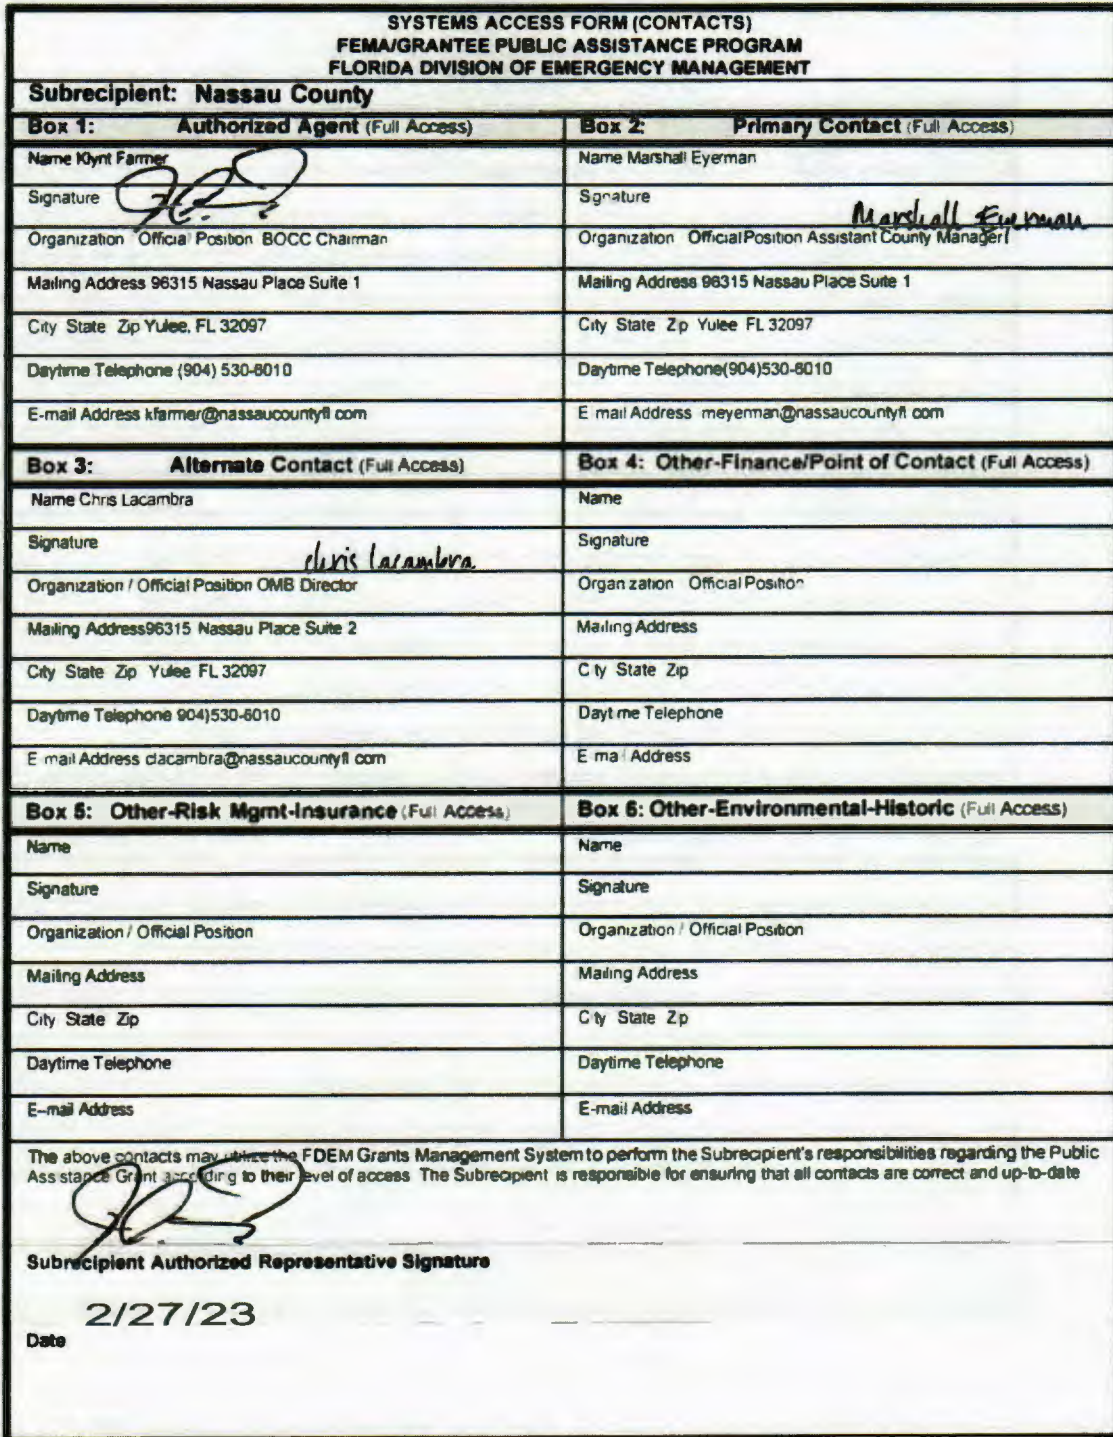 SYSTEMS ACCESS FORM (CONTACTS)
FEMA/GRANTEE PUBLIC ASSISTANCE PROGRAM
FLORIDA DIVISION OF EMERGENCY MANAGEMENT
Subrecipient: Nassau County
Box 1: Authorized Agent (Full Access)
Name Klynt Farmer
Signature
Organization Official Position BOCC Chairman
Mailing Address 96315 Nassau Place Suite 1
City State Zip Yulee, FL 32097
Daytime Telephone (904) 530-6010
E-mail Address kfarmer@nassaucountyfl com
Box 2: Primary Contact (Full Access)
Name Marshall Eyerman
Signature Marshall Eyerman
Organization Official Position Assistant County Manager
Mailing Address 96315 Nassau Place Suite 1
City State Zip Yulee FL 32097
Daytime Telephone(904)530-6010
E mail Address meyerman@nassaucountyfl com
Box 3: Alternate Contact (Full Access)
Name Chris Lacambra
Signature chris lacambra
Organization / Official Position OMB Director
Mailing Address96315 Nassau Place Suite 2
City State Zip Yulee FL 32097
Daytime Telephone 904)530-6010
E mail Address clacambra@nassaucountyfl com
Box 4: Other-Finance/Point of Contact (Full Access)
Name
Signature
Organization Official Position
Mailing Address
City State Zip
Daytime Telephone
E mail Address
Box 5: Other-Risk Mgmt-Insurance (Full Access)
Name
Signature
Organization / Official Position
Mailing Address
City State Zip
Daytime Telephone
E-mail Address
Box 6: Other-Environmental-Historic (Full Access)
Name
Signature
Organization / Official Position
Mailing Address
City State Zip
Daytime Telephone
E-mail Address
The above contacts may utilize the FDEM Grants Management System to perform the Subrecipient's responsibilities regarding the Public
Assistance Grant according to their level of access The Subrecipient is responsible for ensuring that all contacts are correct and up-to-date
Subrecipient Authorized Representative Signature
2/27/23
Date